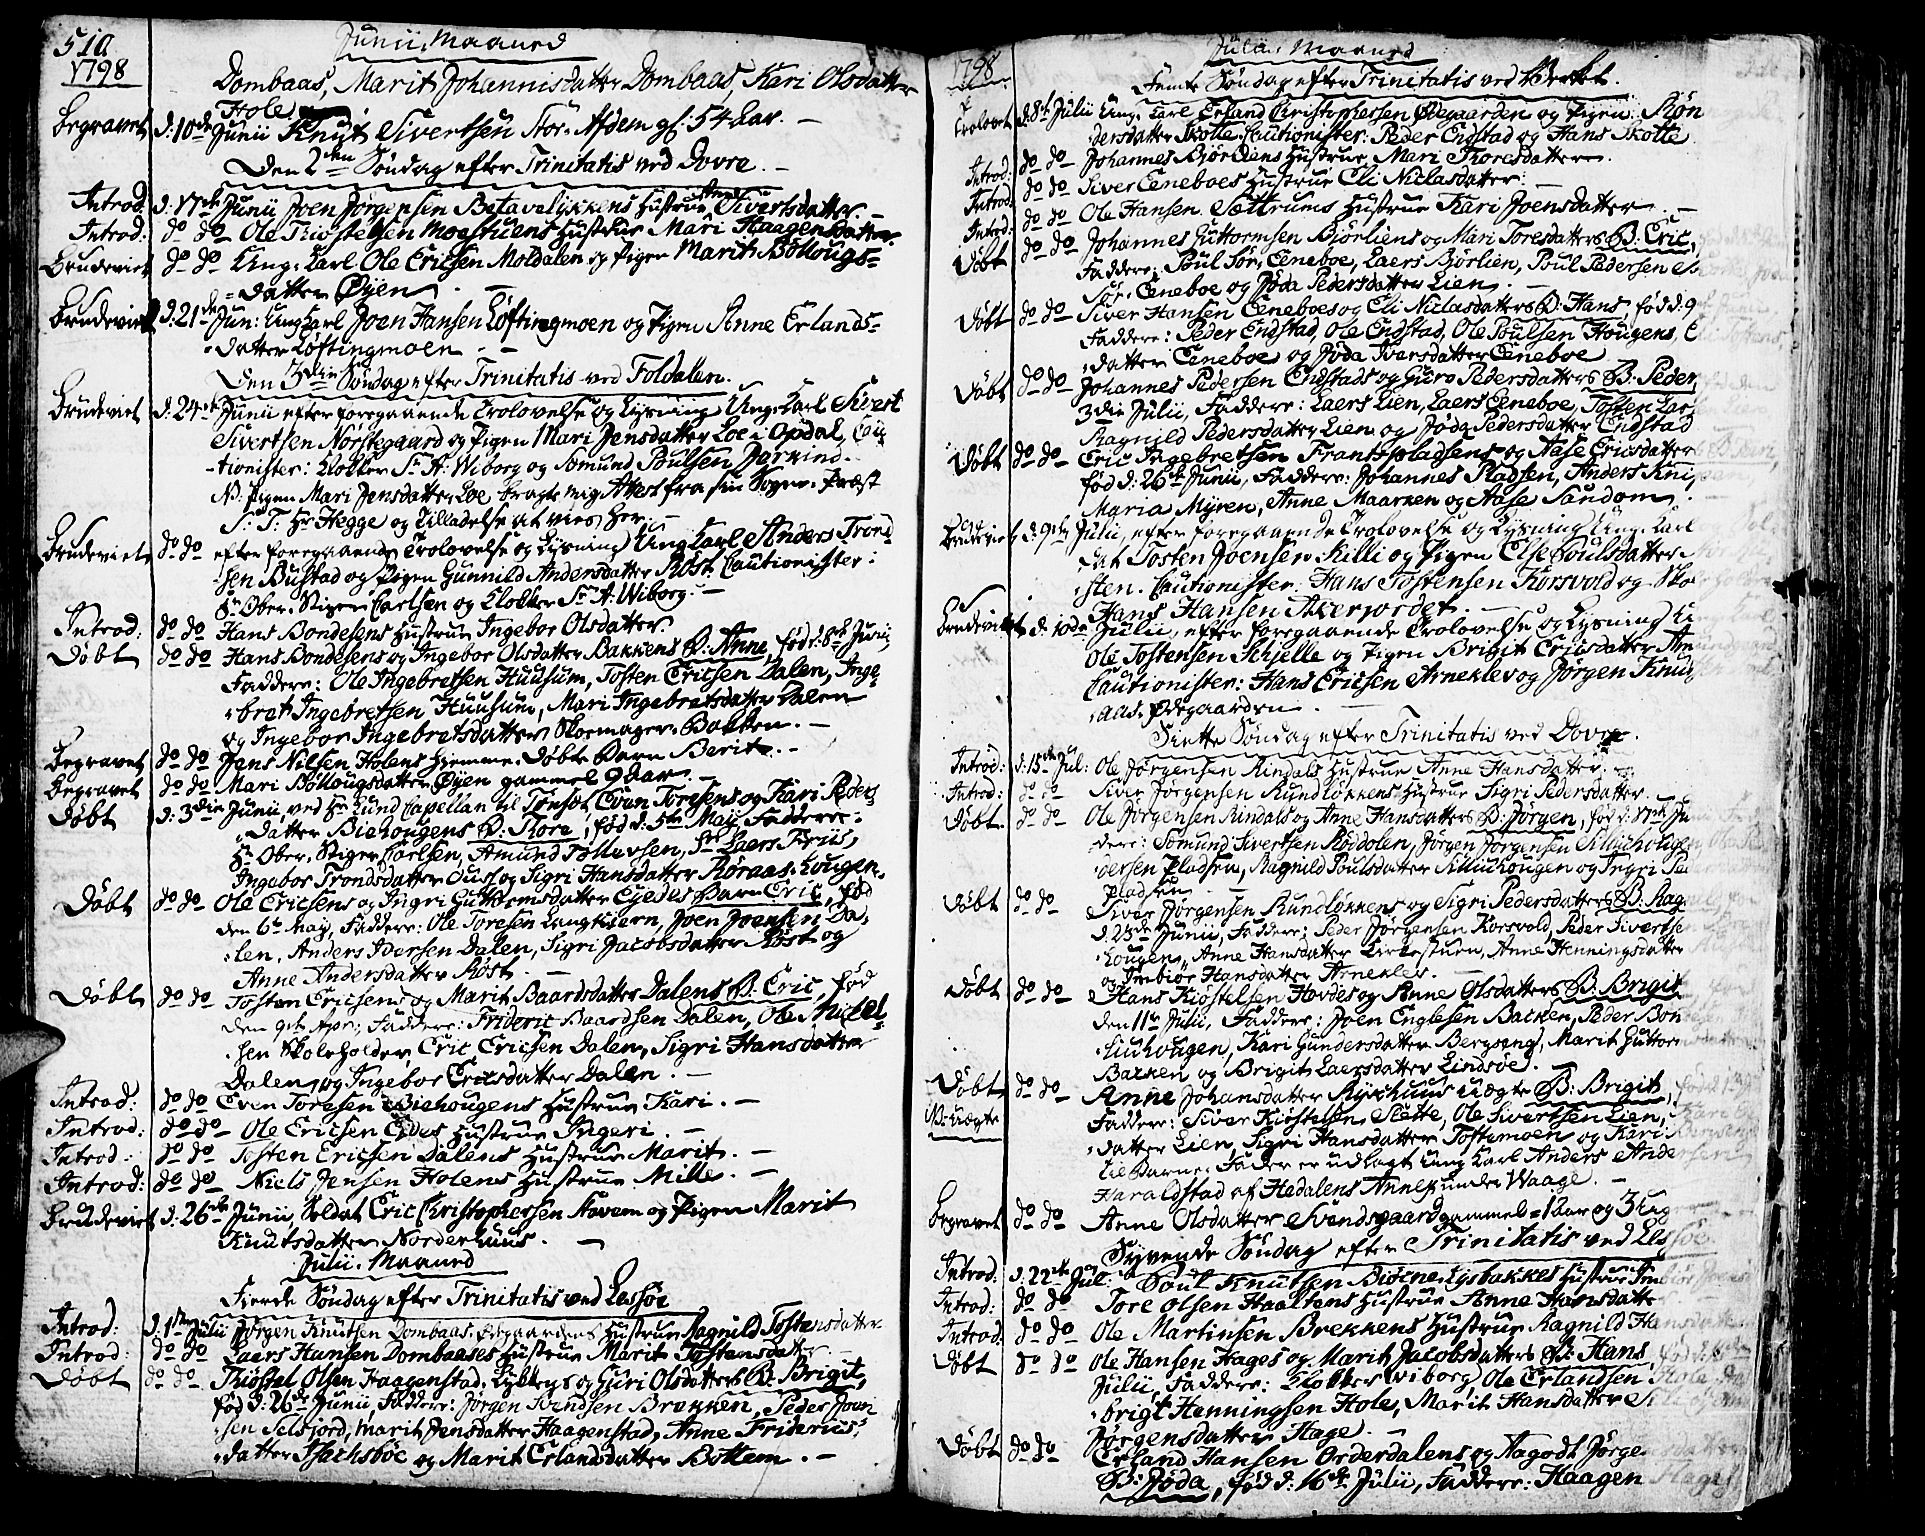 510
1798
Junii Maaned
Dombaas, Marit Johannisdatter Dombaas, Kari Olsdatter
Hole
Begravet d: 10de Junii Knut Sivertsen Stor-Afdem gl: 54 Aar. –
Den 2den Søndag efter Trinitatis ved Dovre. –
Introd: d: 17de Junii Joen Jørgensen Hustrue Anne Sivertsdatter. –
Introd: do do Ole Hustrue Mari Haagensdatter.
Brudeviet do do Ung-Karl Ole Ericsen Moldalen og Pigen Marit Bottougs=
=datter Øyen. –
Brudeviet d: 21de Jun: Ung Karl Joen Hansen Løftingmoen og Pigen Anne Erlands=
=datter Løftingmoen. –
Den 3die Søndag efter Trinitatis ved Foldalen.
Brudeviet d: 24de Junii efter foregaaende Trolovelse og Lysning Ung-Karl Sivert
Sivertsen Nørstegaard og Pigen Mari Jensdatter Loe i Opdal, Cau
-tionister: Klokker Sr A: Wiborg og Somund Poulsen
NB: Pigen Mari Jensdatter Loe bragte mig Attest fra sin Sogne-Præst
S: T: Hr Hegge og Tilladelse at vies her. –
Brudeviet do do efter foregaaende Trolovelse og Lysning Ung Karl Anders Trond=
=sen Bustad og Pigen Gunnild Andersdatter Røst. Cautionister:
Hr Ober-Stiger Carlsen og Klokker Sr A: Wiborg. –
Introd: do do Hans Bondesens Hustrue Ingebor Olsdatter.
Døbt do do Hans Bondesens og Ingebor Olsdatter Bakkens B: Anne, fød d: 8de Junii,
Faddere: Ole Ingebretsen Huusum, Tosten Ericsen Dalen, Inge-
-bret Ingebretsen Huusum, Mari Ingebretsdatter Dalen
og Ingebor Ingebretsdatter Skoemager-Bakken. –
Begravet do do Jens Nilsen Holens hjemme-døbte Barn Berit. –
Begravet do do Mari Bottougsdatter Øyen gammel 9 Aar. –
Døbt d: 3die Junii, ved Hr Lund Capellan til Tønset, Even Toresens og Kari Peders
-datter Biehougens B: Tore, fød d: 5te Maji, Faddere:
Hr Ober-Stiger Carlsen, Amund Sr Laers Friis,
Ingebor Trondsdatter og Sigri Hansdatter Røraas-Hougen.
Døbt do do Ole Ericsens og Ingri Guttormsdatter Eyedes Barn Eric, fød
den 6te May, Faddere: Ole Toresen Langtiern, Joen Joensen Da-
-len, Anders Iversen Dalen, Sigri Jacobsdatter Røst og
Anne Andersdatter Røst. –
Døbt do do Tosten Ericsens og Marit Baardsdatter Dalens B: Eric, fød
den 9de Apr: Faddere: Frideric Baardsen Dalen, Ole Mikel-
-sen Skoleholder, Eric Ericsen Dalen, Sigri Hansdatter
Dalen, og Ingebor Ericsdatter Dalen. –
Introd: do do Even Toresen Biehougens Hustrue Kari. –
Introd: do do Ole Ericsen Eyedes Hustrue Ingeri. –
Introd: do do Tosten Ericsen Dalens Hustrue Marit. –
Introd: do do Niels Jensen Holens Hustrue Mille. –
Brudeviet d: 26de Junii, Soldat Eric Christophersen Stavem og Pigen Marit
Knutsdatter Norderhuus. –
Julii Maaned
Fierde Søndag efter Trinitatis ved Lessøe
Introd: d: 1ste Julii Jørgen Knutsen Dombaas-Ødegaardens Hustrue Ragnild Tostensdatter
Introd: do do Laers Hansen Dombaases Hustrue Marit Tostensdatter –
Døbt do do Kiøstel Olsen Haagenstad-Lykkens og Guri Olsdatters B: Brigit,
fød d: 26de Junii, Faddere: Jørgen Svendsen Brekken, Peder Joen
-sen Selsjord, Marit Jensdatter Haagenstad, Anne Friderics-
-datter og Marit Erlandsdatter Bottem. –
1798
Julii Maaned
Femte Søndag efter Trinitatis ved Værket.
Trolovet d: 8de Julii Ung-Karl Erland Christophersen Ødegaarden og Pigen Røn
dersdatter Skotte. Cautionister: Peder Endstad og Hans Skotte
Introd: do do Johannes Bjørliens Hustrue Mari Thoresdatter.
Introd: do do Siver Eeneboes Hustrue Eli Niclasdatter. –
Introd: do do Ole Hansen Sættrums Hustrue Kari Joensdatter. –
Døbt do do Johannes Guttormsen Bjørliens og Mari Toresdatters B: Eric,
Faddere: Poul Sør-Eeneboe, Laers Bjørlien, Poul Pedersen
Sør-Eeneboe og Jøda Pedersdatter Lien. –
Døbt do do Siver Hansen Eeneboes og Eli Niclasdatters B: Hans, fød d: 9
Faddere: Peder Endstad, Ole Endstad, Ole Poulsen Hougens,
-datter Eeneboe og Jøda Iversdatter Eeneboe
Døbt do do Johannes Pedersen Endstads og Guro Pedersdatters B: Peder,
3die Julii, Faddere: Laers Lien, Laers Eeneboe, Tosten
Ragnild Pedersdatter Lien og Jøda Pedersdatter Endstad
Døbt do do Eric Ingebretsen Frantspladsens og Aase Ericsdatters
fød d: 26de Junii, Faddere: Johannes Pladsen, Anders
Maria Myren, Anne Maarken og Aase Sandom.
Brudeviet d: 9de Julii, efter foregaaende Trolovelse og Lysning Ung-Karl
-dat Tosten Joensen Killi og Pigen Else Poulsdatter
-sten. Cautionister: Hans Tostensen Korsvold og
Hans Hansen Akerjordet. –
Brudeviet d: 10de Julii, efter foregaaende Trolovelse og Lysning
Ole Tostensen Kjelle og Pigen Brigit Ericsdatter
Cautionister: Hans Ericsen Arneklev og Jørgen Knud
-aas-Ødegaarden. –
Siette Søndag efter Trinitatis ved Dovre.
Introd: d: 15de Jul: Ole Jørgensen Rindals Hustrue Anne Hansdatter.
Introd: do do Siver Jørgensen Rundløkkens Hustrue Sigri Pedersdatter.
Døbt do do Ole Jørgensen Rindals og Anne Hansdatters B: Jørgen, fød d: 17de Ju
dere: Somund Sivertsen Røddolen, Jørgen Jørgensen
dersen Pladsen, Ragnild Poulsdatter og Ingri
Pladsen. –
Døbt do do Siver Jørgensen Rundløkkens og Sigri Pedersdatters B: Rag
d: 23de Junii, Faddere: Peder Jørgensen Korsvold, Peder Sivertse
Hougen, Anne Hansdatter Anne Henningsdatter
og Imbiør Hansdatter Arneklev. –
Døbt do do Hans Kiøstelsen Hovdes og Anne Olsdatters B: Brigit
den 11te Julii, Faddere: Joen Englesen Bakken, Peder
Kari Gundersdatter Bergseng, Marit Guttor
Bakken og Brigit Laersdatter Lindsøe. –
Døbt do do Anne Johansdatter uægte B: Brigit,
NB: uægte Faddere: Siver Kiøstelsen Slette, Ole Sivertsen Lien,
-datter Lien, Sigri Hansdatter Toftemoen og Kari
til Barne-Fader er udlagt Ung Karl Anders Andersen
Haraldstad af Hedalens Annex under Waage. –
Begravet do do Anne Olsdatter Svendsgaard gammel 1 Aar og 3
Syvende Søndag efter Trinitatis ved Lessøe.
Introd: d: 22de Jul: Poul Knutsen Hustrue
Introd: do do Tore Olsen Haaltens Hustrue Anne Hansdatte
Introd: do do Ole Martinsen Brekkens Hustrue Ragnild
Døbt do do Ole Hansen Hages og Marit Jacobsdatters B: Hans,
Julii, Faddere: Klokker Wiborg, Ole Erlandsen
-brigt Henningsen Hole, Marit Hansdatter
Jørgensdatter Hage. –
Døbt do do Erland Hansen Orderdalens og Aagodt Jørge
B: Jøda, fød d: 16de Julii, Faddere: Haagen